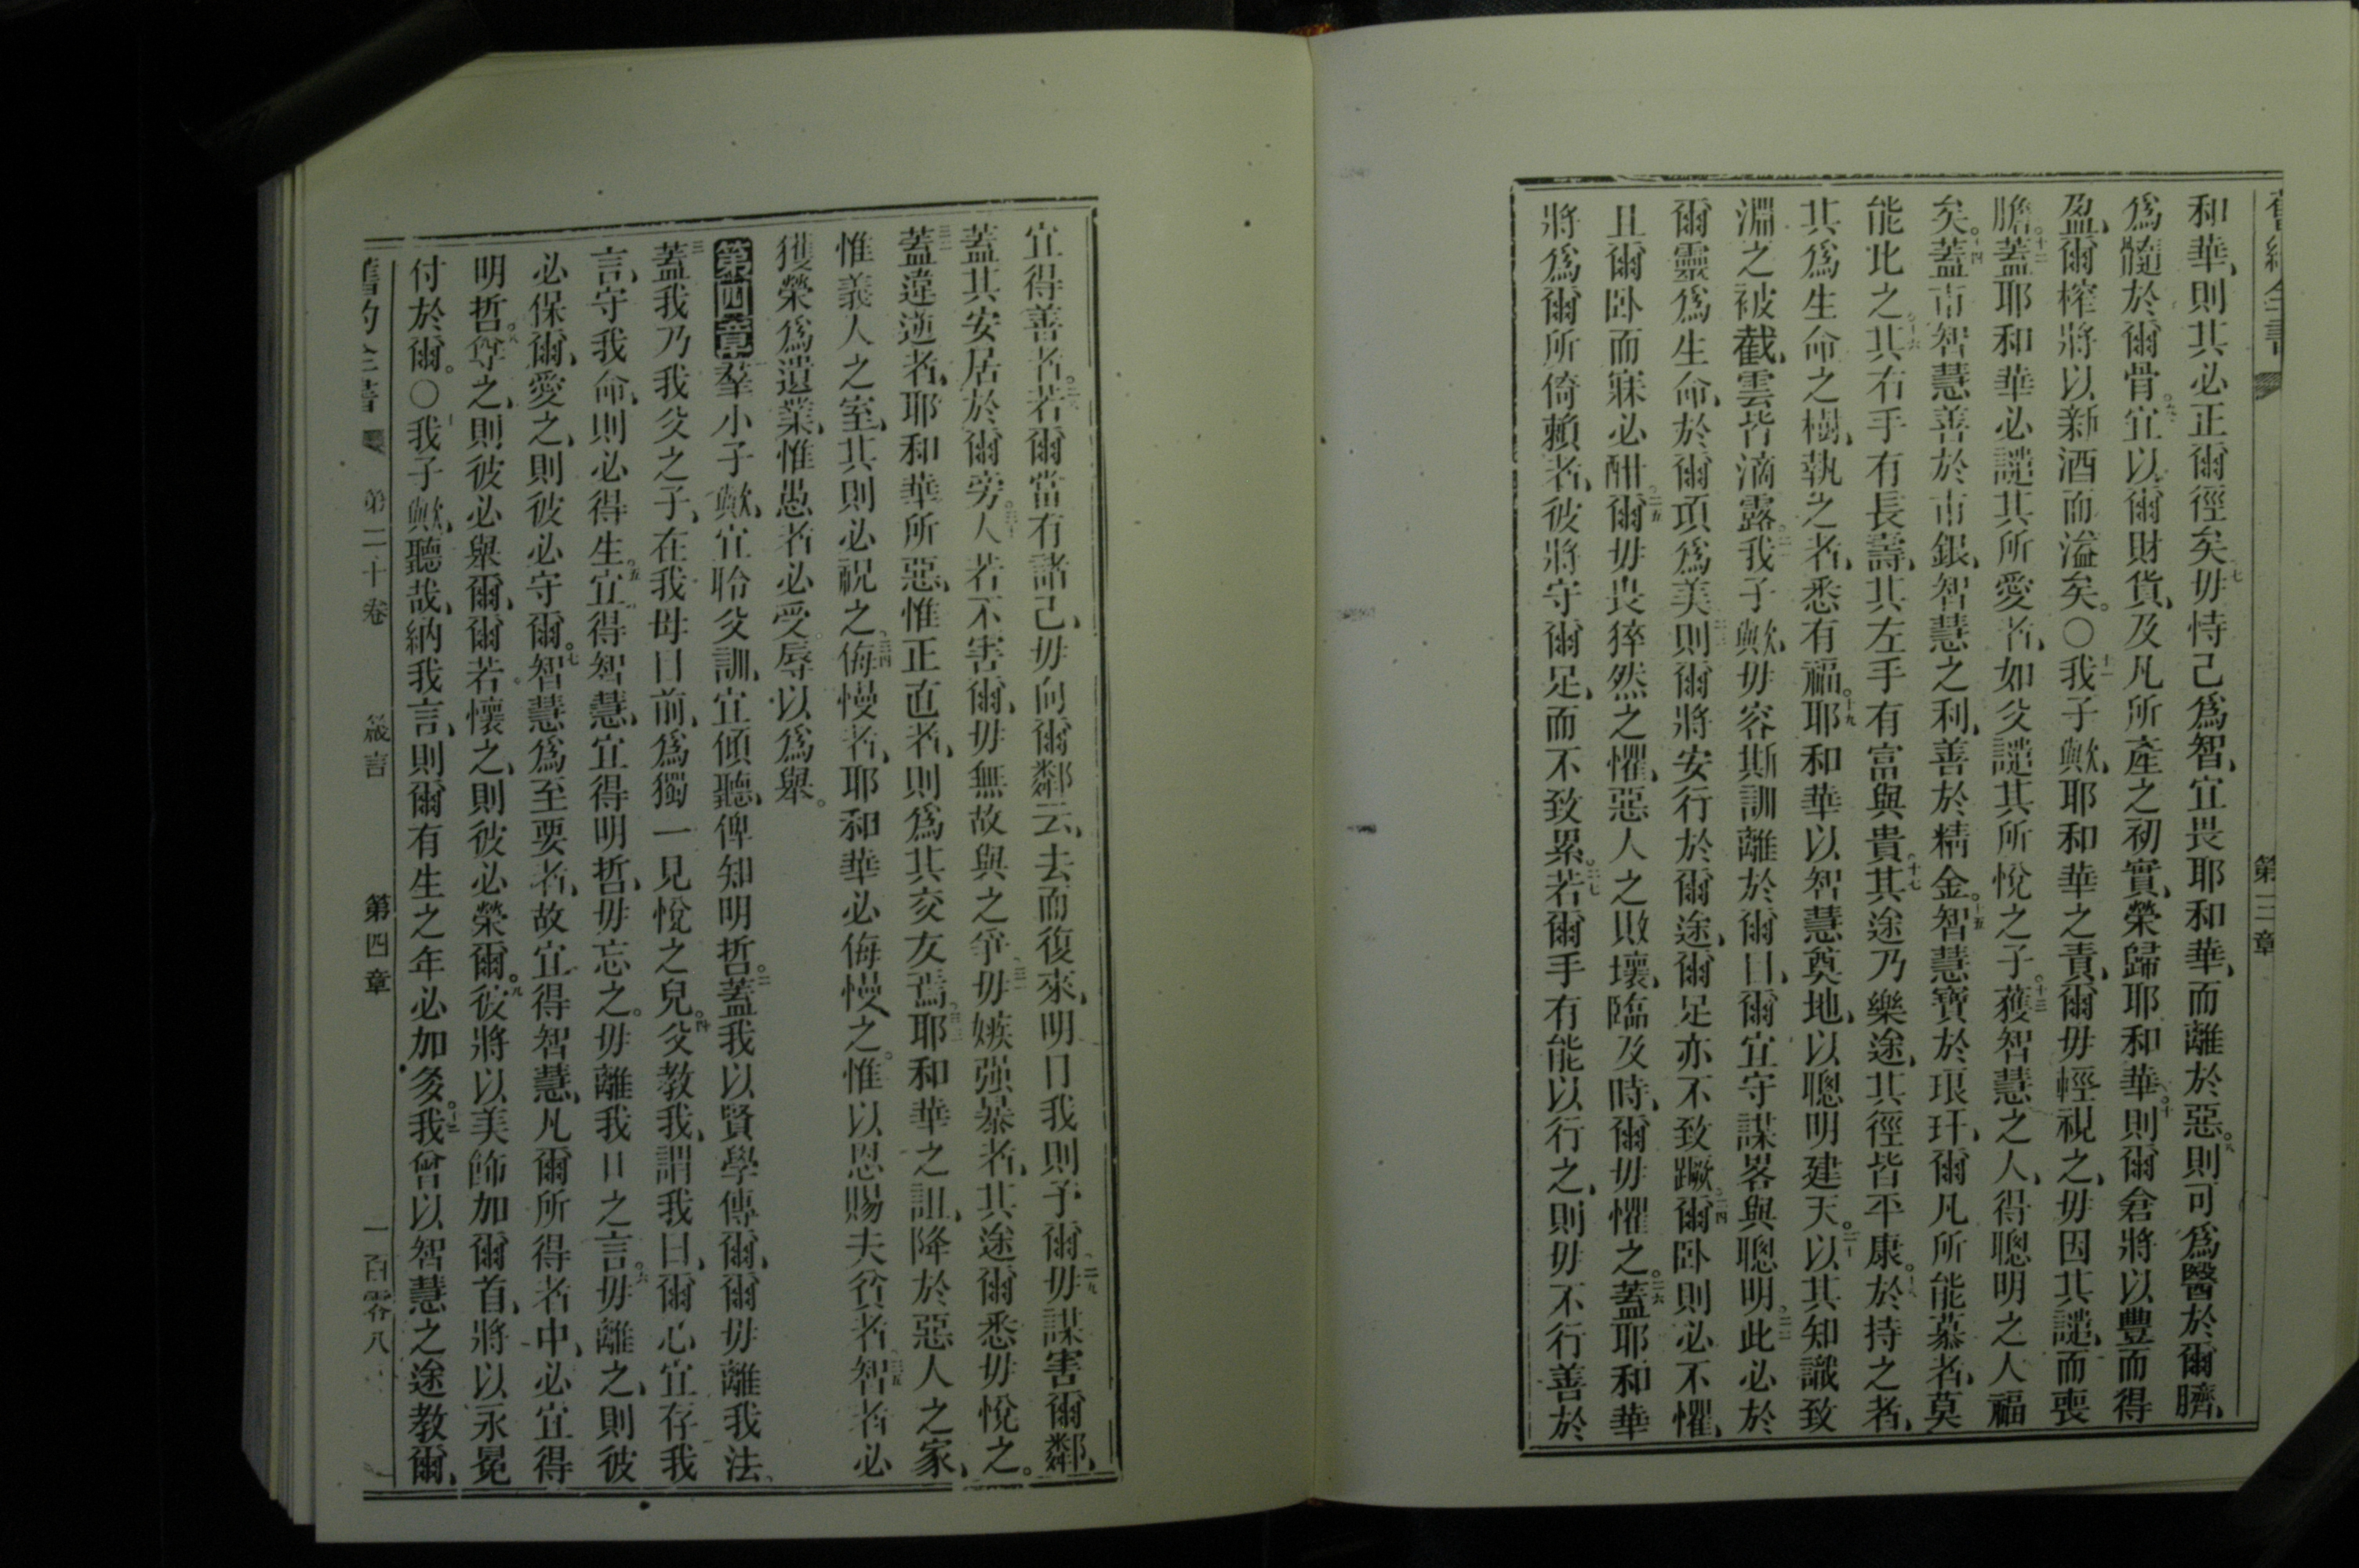 第三章
和華、則其必正爾徑矣、七毋恃己爲智、宜畏耶和華、而離於惡。八則可爲醫於爾臍、
爲髓於爾骨。九宜以爾財貨、及凡所產之初實、榮歸耶和華。十則爾倉將以豐而得
盈、爾榨將以新酒而溢矣。〇十一我子歟、耶和華之責、爾毋輕視之、毋因其譴、而喪
膽。十二蓋耶和華必譴其所愛者、如父譴其所悅之子。十三獲智慧之人、得聰明之人福
矣。十四蓋市智慧善於市銀、智慧之利、善於精金。十五智慧寶於琅玕、爾凡所能慕者、莫
能比之。十六其右手有長壽、其左手有富與貴。十七其途乃樂途、其徑皆平康。十八於持之者、
其爲生命之樹、執之者、悉有福。十九耶和華以智慧奠地、以聰明建天。二十以其知識致
淵之被截、雲皆滴露。二一我子歟、毋容斯訓離於爾目、爾宜守謀畧與聰明。二二此必於
爾靈爲生命、於爾項爲美。二三則爾將安行於爾途、爾足亦不致蹶。二四爾卧則必不懼、
且爾卧而寐必酣。二五爾毋畏猝然之懼、惡人之敗壞、臨及時、爾毋懼之。二六蓋耶和華
將爲爾所倚賴者、彼將守爾足、而不致累。二七若爾手有能以行之、則毋不行善於
宜得善者。二八若爾當有諸己、毋向爾鄰云、去而復來、明日我則予爾。二九毋謀害爾鄰、
蓋其安居於爾旁。三十人若不害爾、毋無故與之爭。三一毋嫉强暴者、其途爾悉毋悅之。
三二蓋違逆者、耶和華所惡、惟正直者、則爲其交友焉。三三耶和華之詛、降於惡人之家、
惟義人之室、其則必祝之。三四侮慢者、耶和華必侮慢之。惟以恩賜夫貧者。三五智者必
獲榮爲遺業、惟愚者必受辱以爲舉。
第四章 羣小子歟、宜聆父訓、宜傾聽、俾知明哲。二蓋我以賢學傳爾、爾毋離我法、
三蓋我乃我父之子、在我母目前、爲獨一見悅之兒。四父教我、謂我曰、爾心宜存我
言、守我命、則必得生。五宜得智慧、宜得明哲、毋忘之。毋離我口之言。六毋離之、則彼
必保爾、愛之、則彼必守爾。七智慧爲至要者、故宜得智慧、凡爾所得者中、必宜得
明哲。八尊之、則彼必舉爾、爾若懷之、則彼必榮爾。九彼將以美飾加爾首、將以永冕
付於爾。〇十我子歟、聽哉、納我言、則爾有生之年必加多。十一我曾以智慧之途教爾、
舊約全書 第二十卷 箴言 第四章 一百零八